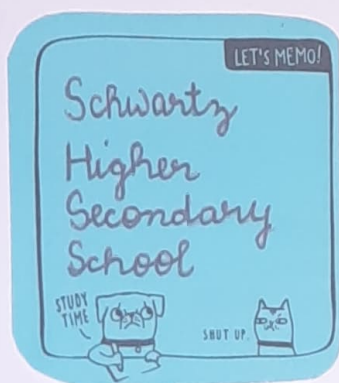 LET'S MEMO!
Schwartz
Higher
Secondary
School
STUDY
TIME
SHUT UP.